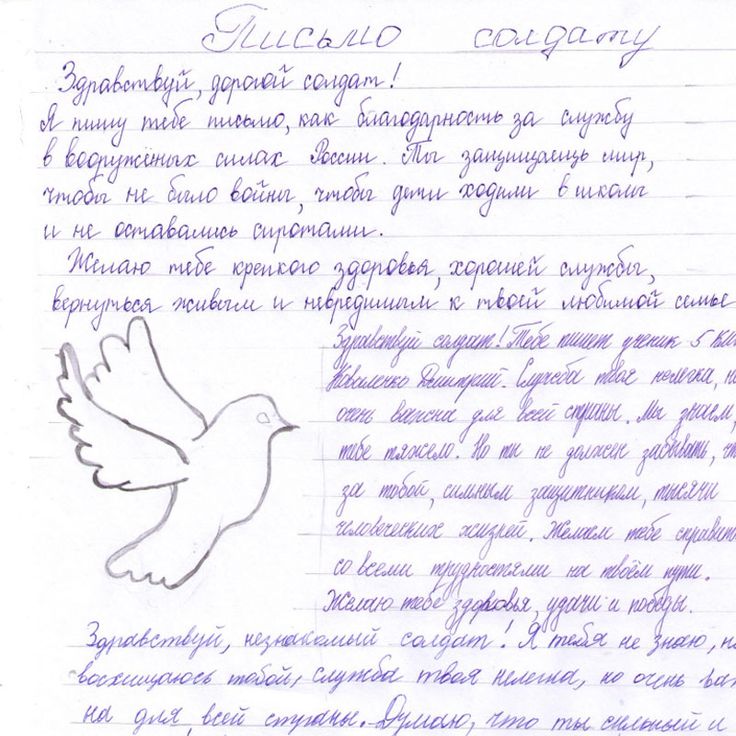 Письмо солдату
Здравствуй, дорогой солдат!
Я пишу тебе письмо, как благодарность за службу
в вооружёных силах России. Ты защищаешь мир,
чтобы не было войны, чтобы дети ходили в школы
и не оставались сиротами.
Желаю тебе крепкого здоровья, хорошей службы,
вернуться живым и невредимым к твоей любимой семье
Здравствуй солдат! Тебе пишет ученик 5 кла
Коваленко Дмитрий. Служба твоя нелегка, но
очень важна для всей страны. Мы знаем,
тебе тяжело. Но ты не должен забывать, чт
за тобой, сильным защитником, тысячи
человеческих жизней. Желаем тебе справить
со всеми трудностями на твоём пути.
Желаю тебе здоровья, удачи и победы.
Здравствуй, незнакомый солдат! Я тебя не знаю, но
восхищаюсь тобой, служба твоя нелегка, но очень важ
на для всей страны. Думаю, что ты сильный и